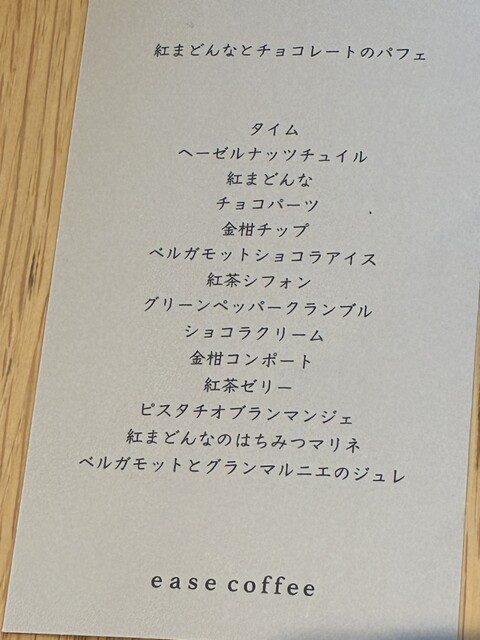 紅まどんなとチョコレートのパフェ
タイム
ヘーゼルナッツチュイル
紅まどんな
チョコパーツ
金柑チップ
ベルガモットショコラアイス
紅茶シフォン
グリーンペッパークランブル
ショコラクリーム
金柑コンポート
紅茶ゼリー
ピスタチオブランマンジェ
紅まどんなのはちみつマリネ
ベルガモットとグランマルニエのジュレ
ease coffee